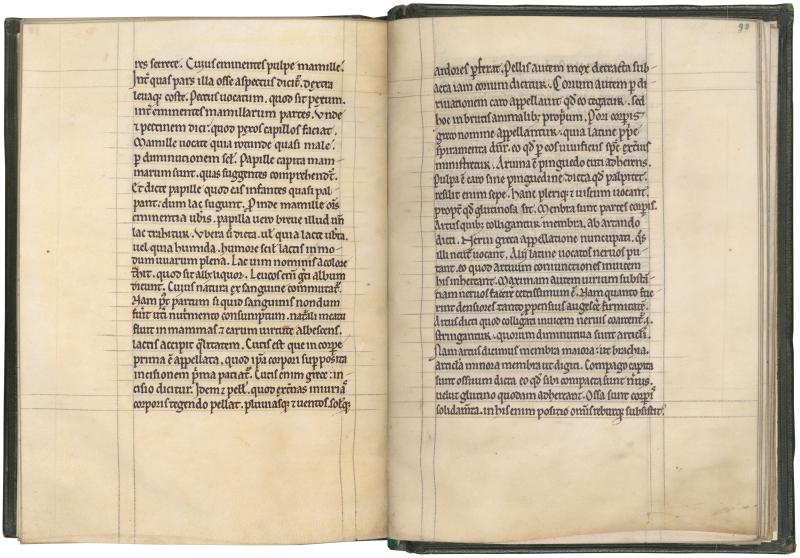 res secrete. Cuius eminentes pulpe mamille.
Int̄ quas pars illa osse aspectus dicit̄. dextra
leuaq; coste. Pectus uocatum. quod sit pexum.
int̄ eminentes mamillarum partes. Vnde
⁊ pectinem dici. quod pexos capillos faciat.
Mamille uocate quia rotunde quasi male.
p̱ diminutionem scł. Papille capita mam
marum sunt. quas suggentes comprehendūt.
Et dicte papille quod eas infantes quasi pal
pant. dum lac sugunt. Pinde mamille oīs
eminentia uƀis. papilla uero breue illud uñ
lac trahitur. Vbera ł dicta. ul̄ quia lacte ubta.
uel quia humida. humore scił lactis in mo
dum uuarum plena. Lac uim nominis a colore
t̄hit. quod sit albꝰ liquor. Leucos eñi gc̄i album
dicunt. Cuius natura ex sanguine commutat̄.
Nam pꝰ partum si quid sanguinis nondum
fuit ut̄i nut̄mento consumptum. nat̄ali meatu
fluit in mammas. ⁊ earum uirtute albescens.
lactis accipit q̄litatem. Cutis est que in corpe
prima ē appellata. quod ip̄a corpori supposita
incisionem p̄ma patiat̄. Cutis enim grece. in
cisio dicitur. Idem ⁊ pell'. quod ext̄nas iniurias
corporis tegendo pellat. pluuiasq; ⁊ uentos. solisq;
98
ardores p̱ferat. Pellis autem mox detracta sub
acta iam corium dicitur. Corium autem p̱ di
riuationem caro appellauit qđ eo tegatur. sed
hoc in brutis animalibꝰ p̱prium. Pori corpis
greco nomine appellantur. quia latine p̱pe
spiramenta dñr. eo qđ p̱ eos uiuificus sp̄c exꝉius
ministretur. Aruina ē pinguedo cuti adherens.
Pulpa ē caro sine pinguedine. dicta qđ palpitet.
resilit enim sepe. Hanc pleriq; ⁊ uiscum uocant.
propt̄ qđ glutinosa sit. Menbra sunt partes corpis.
Artus quibꝰ colligantur membra. ab artando
dicti. Nerui greca appellatione nuncupati. q̄s
illi neut̄ uocant. Alij latine uocatos neruos pu
tant. eo quod artuum coniunctiones inuicem
his inhereant. Maximam autem uirium substā
tiam neruos facere certissimum ē. Nam quanto fue
rint densiores tanto p̱pensius augesce firmitatē.
Artus dicti quod colligati inuicem neruis coartent̄. i.
stringantur. quorum diminutiua sunt articli.
Nam artus dicimus membra maiora. ut brachia.
articla minora membra ut digiti. Compago capita
sunt ossium dicta eo qđ sibi compacta sunt neruis.
uelut glutino quodam adhereant. Ossa sunt corpis
solidamta. in his enim positio omīs roburq; subsistit.